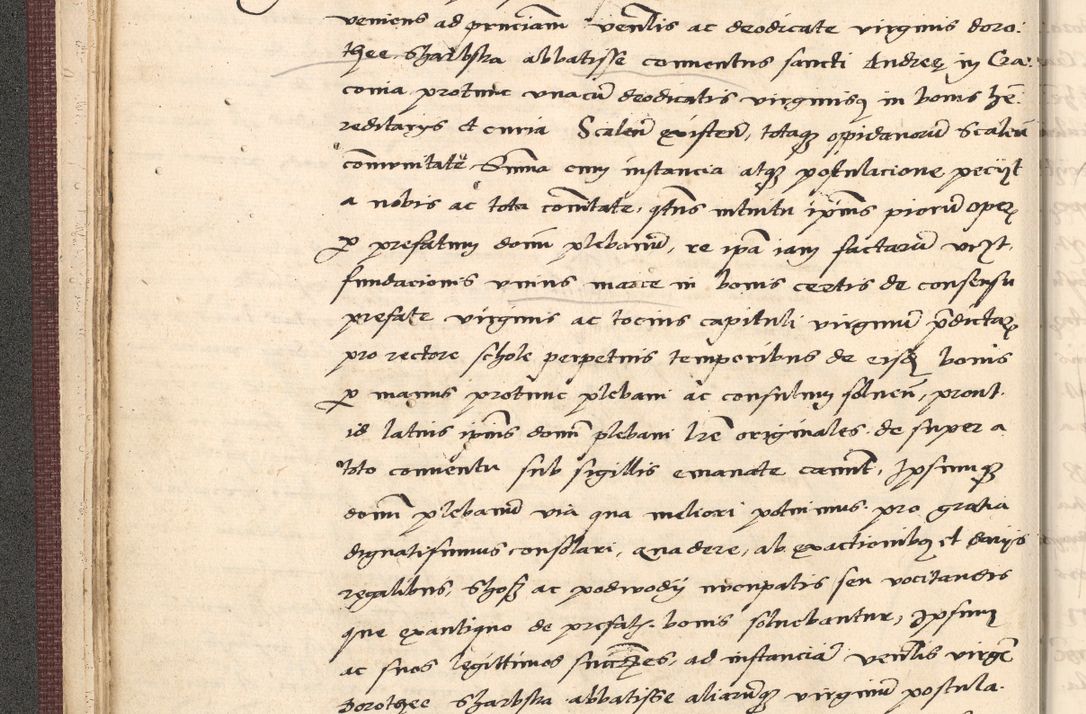 veniens ad prnciam venlis ac deodicate virginis doro:
thee Sharbska abbatisse conventus sancti Andreę in Cra:
covia protunc unacū deodicatis virginibq in bonis hē:
reditarys et curia Scaleñ existeñ, totaqz oppidanorū Scaleñ
comunitate Suma cum instancia atqz postulacione peciyt
a nobis ac tota comitate, qtns intuitu ipius piorū operz
per prefatum domī plebanū, re ipa iam factarū
fundacionis unius marce in bonis certis de consensu
prefate virginis ac tocius capituli virginū pdictarz
pro rectore schole perpetuis temporibus de eisdz bonis
per manus protunc plebani ac consulum solueñ, prout
id latius ipius domī plebani lre originales de super a
toto conventu sub sigillis emanate canunt, Ipsumqz
domī plebanū via qua meliori potuimus pro gratia
dignatissimus consolari, quadere, ab exactionibq et
regalibus, Shosz ac podwody nucupatis seu vocitandis
que exantiquo de prefatz bonis solvebantur, Ipsum
ac suos legittimos succes, ad instanciā venlis virgē
Dorothee Sharbska abbatisse aliarūqz virginū postula: